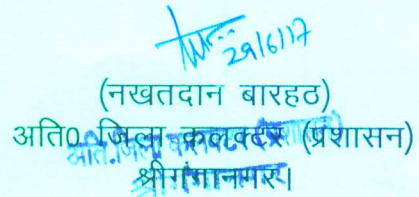 29/6/17
(नखतदान बारहठ)
अति० जिला कलक्टर (प्रशासन)
श्रीगंगानगर।